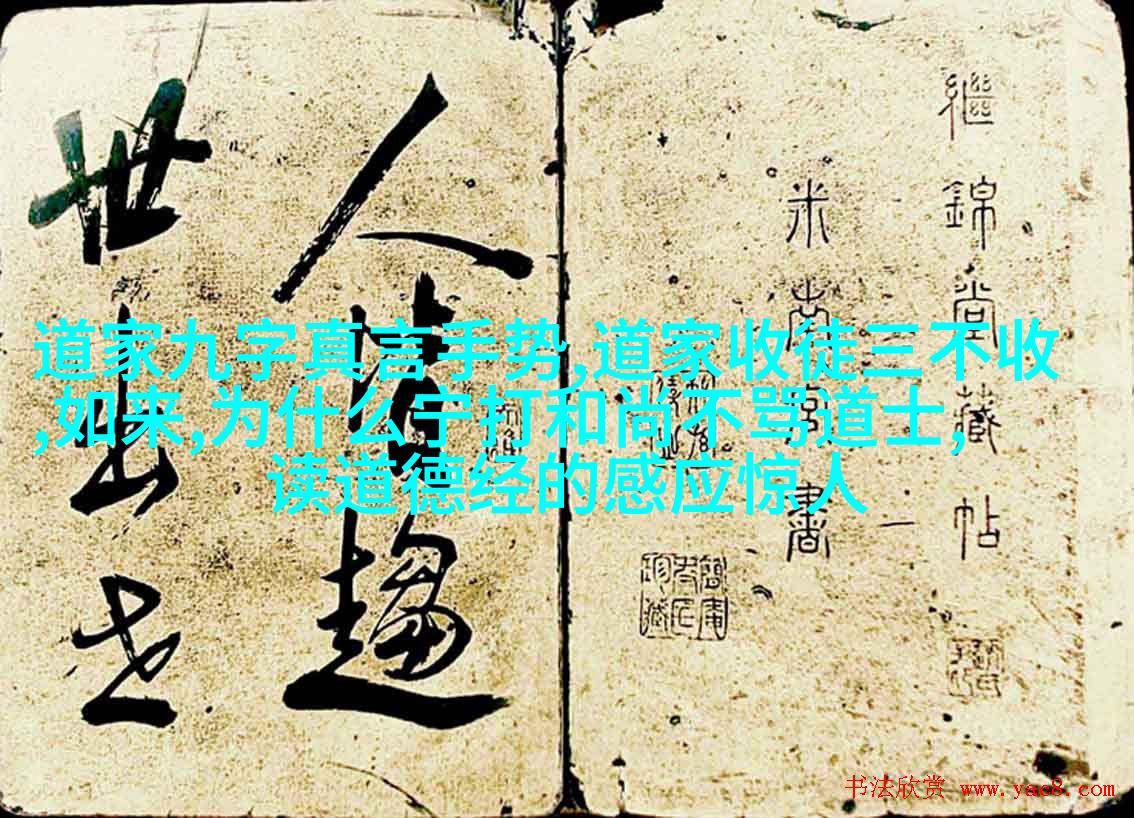 道家九字真言手势,道家收徒三不收
,如来,为什么宁打和尚不骂道士,
读道德经的感应惊人
繼錦堂藏帖
米南宫書
一
人皆趨
世出世
书法欣赏 www.yac8.com